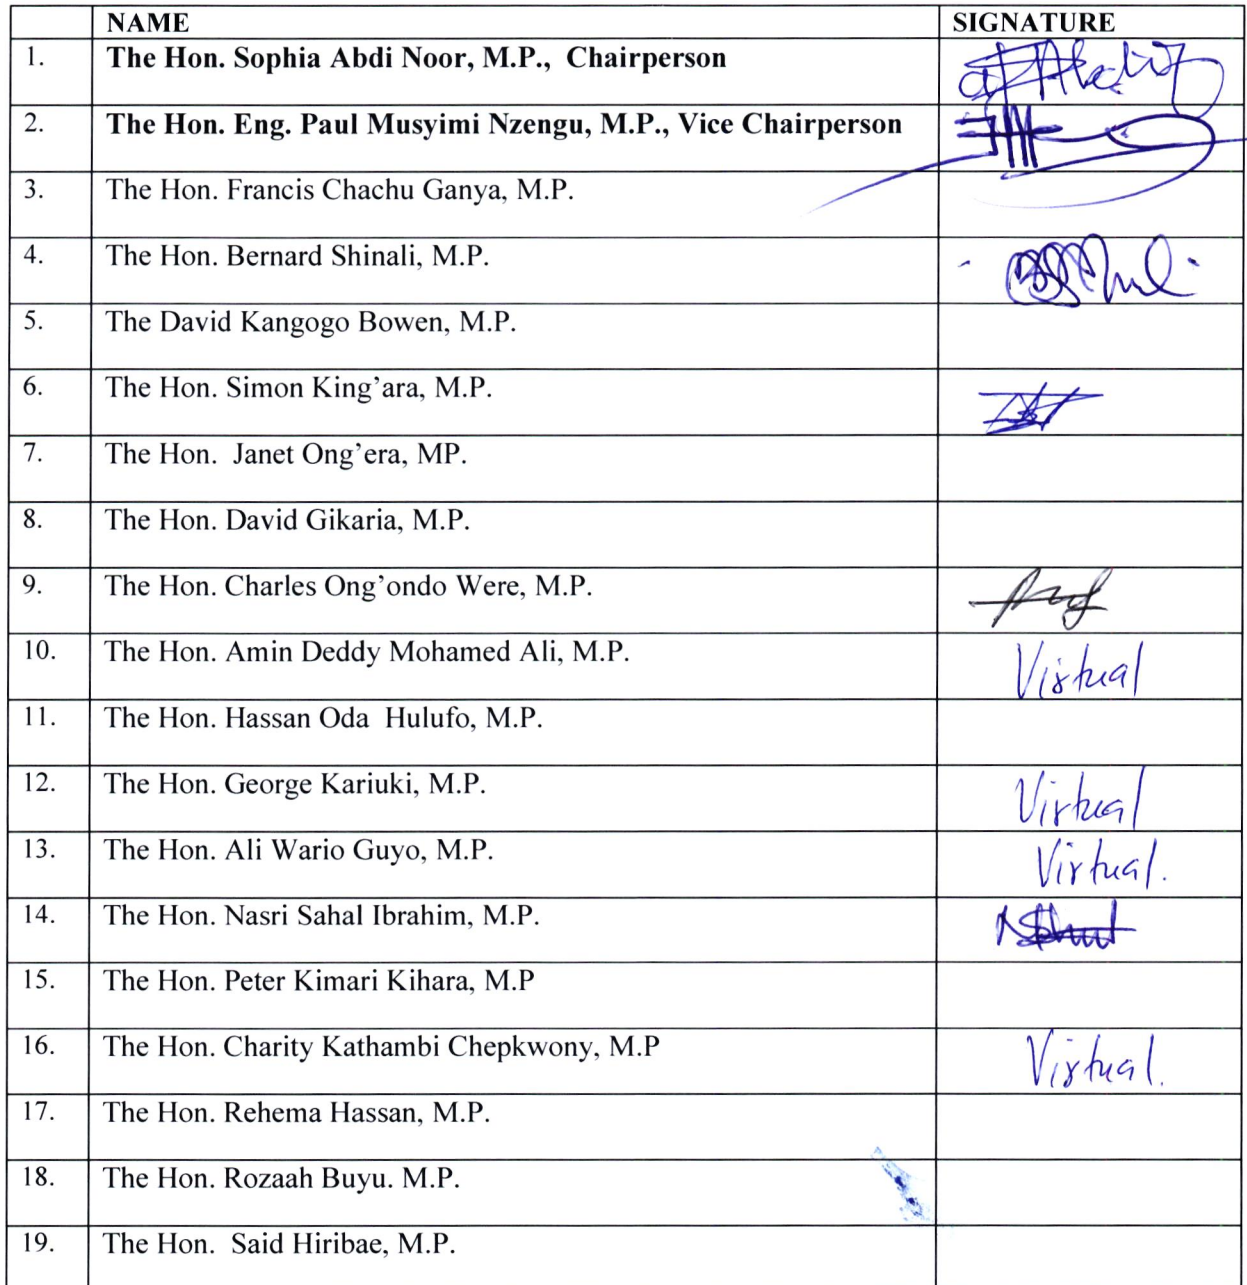 NAME SIGNATURE
1. The Hon. Sophia Abdi Noor, M.P., Chairperson
2. The Hon. Eng. Paul Musyimi Nzengu, M.P., Vice Chairperson
3. The Hon. Francis Chachu Ganya, M.P.
4. The Hon. Bernard Shinali, M.P.
5. The David Kangogo Bowen, M.P.
6. The Hon. Simon King’ara, M.P.
7. The Hon. Janet Ong’era, MP.
8. The Hon. David Gikaria, M.P.
9. The Hon. Charles Ong’ondo Were, M.P.
10. The Hon. Amin Deddy Mohamed Ali, M.P. Virtual
11. The Hon. Hassan Oda Hulufo, M.P.
12. The Hon. George Kariuki, M.P. Virtual
13. The Hon. Ali Wario Guyo, M.P. Virtual.
14. The Hon. Nasri Sahal Ibrahim, M.P.
15. The Hon. Peter Kimari Kihara, M.P
16. The Hon. Charity Kathambi Chepkwony, M.P Virtual.
17. The Hon. Rehema Hassan, M.P.
18. The Hon. Rozaah Buyu. M.P.
19. The Hon. Said Hiribae, M.P.